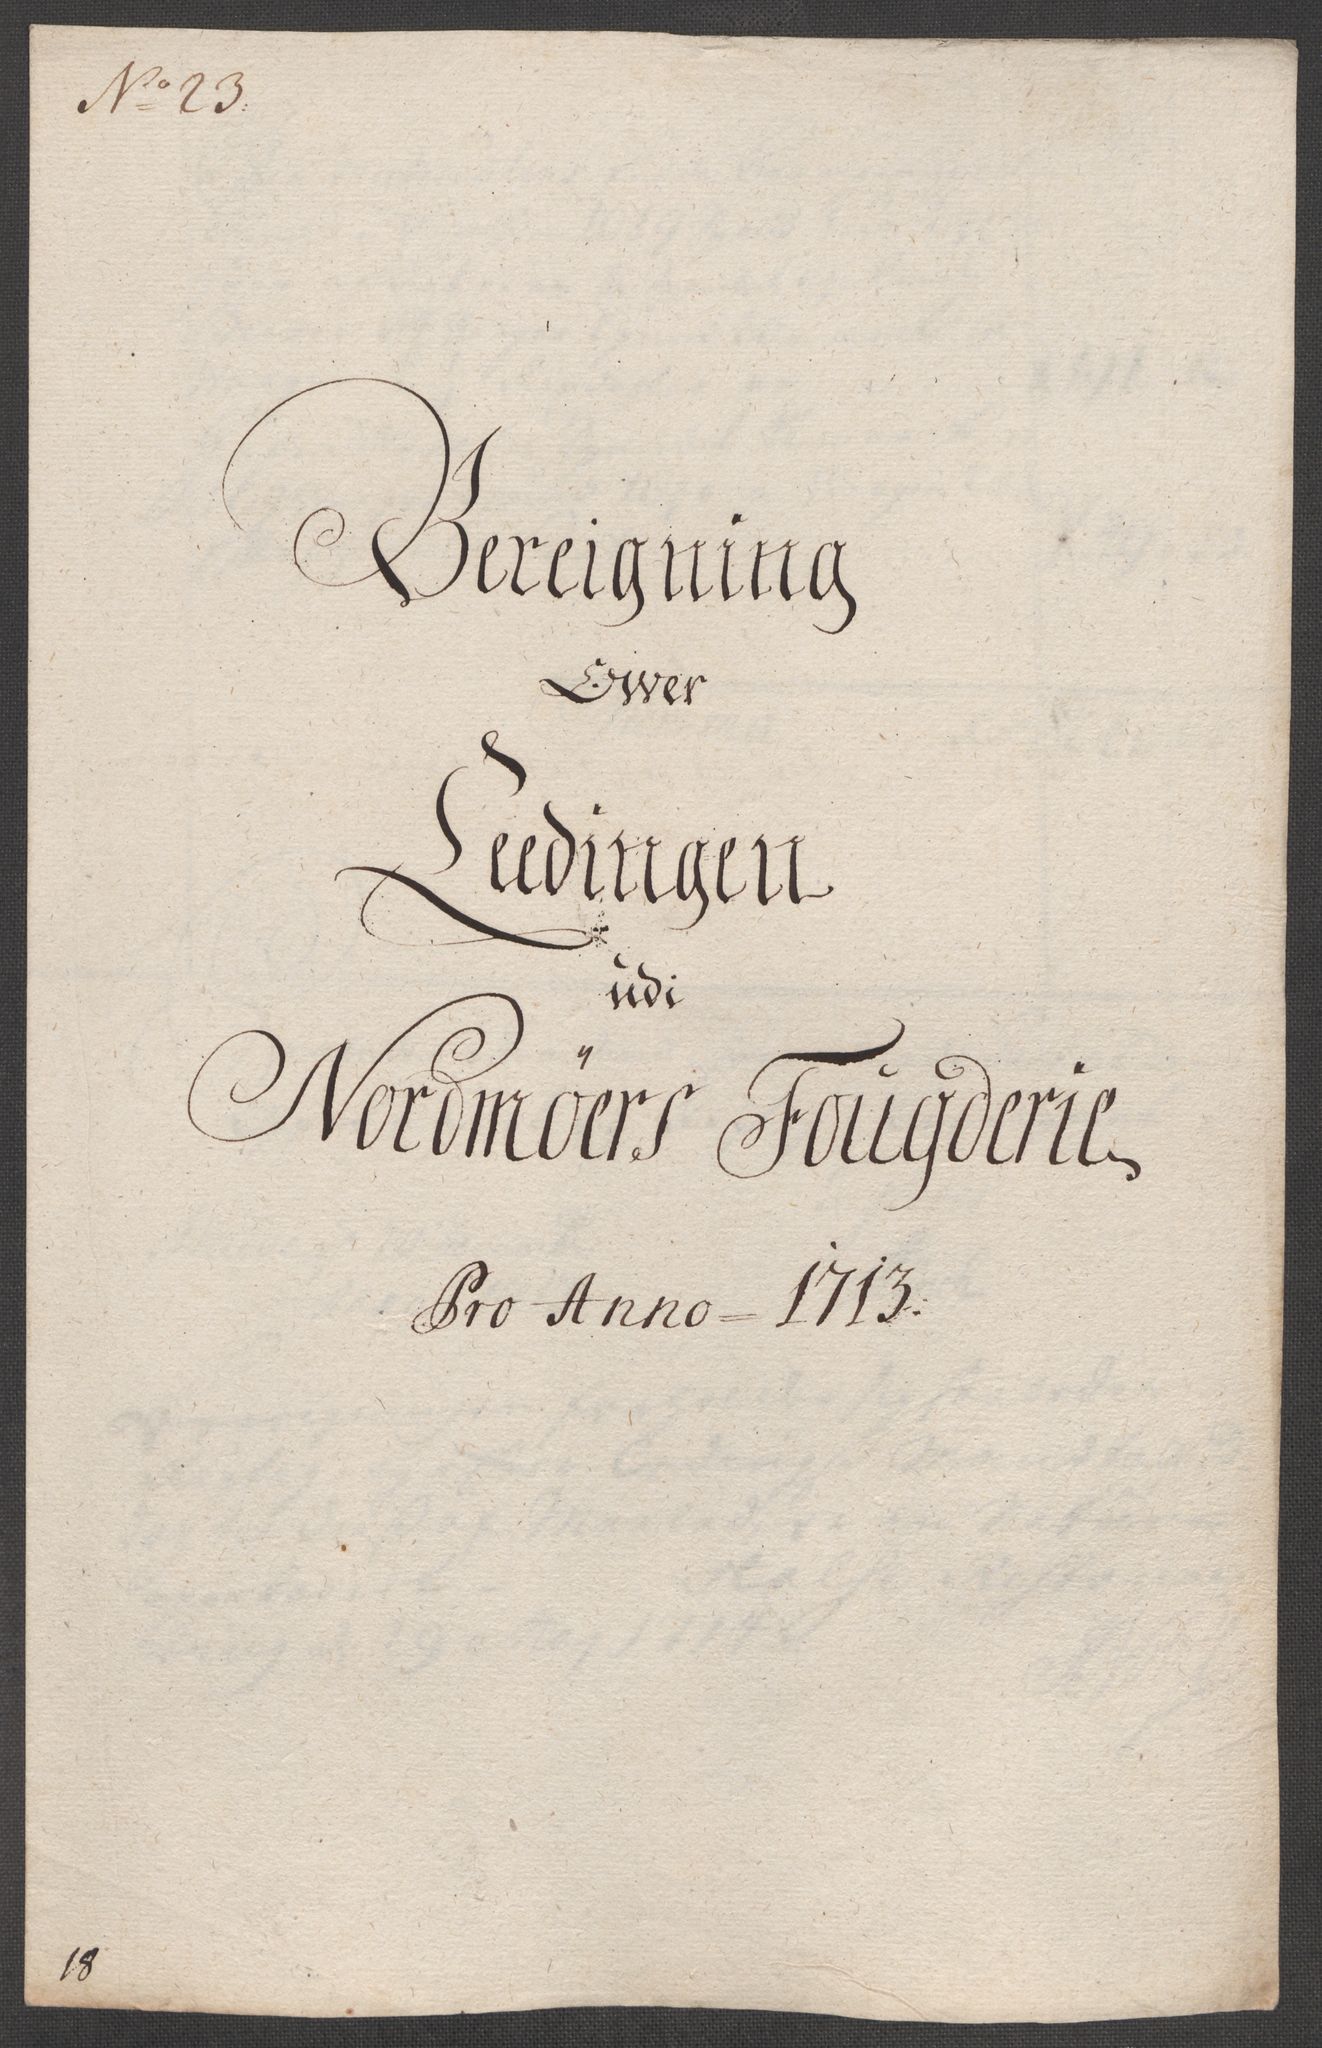 No 23.
Bereigning
Ower
Leedingen
udi
Nordmöers Fougderie
Pro Anno = 1713.
18